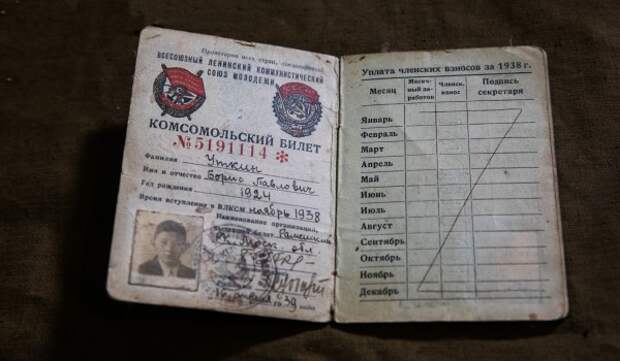 Пролетарии всех стран, соединяйтесь!
ВСЕСОЮЗНЫЙ ЛЕНИНСКИЙ КОММУНИСТИЧЕСКИЙ
СОЮЗ МОЛОДЕЖИ
КОМСОМОЛЬСКИЙ БИЛЕТ
№ 5191114 *
Фамилия Уткин
Имя и отчество Борис Павлович
Год рождения 1924
Время вступления в ВЛКСМ ноябрь 1938
Наименование организации,
билет
обл.
39
Уплата членских взносов за 1938 г.
Месяц
Месяч-
ный за-
работок
Членск.
взнос
Подпись
секретаря
Январь
Февраль
Март
Апрель
Май
Июнь
Июль
Август
Сентябрь
Октябрь
Ноябрь
Декабрь